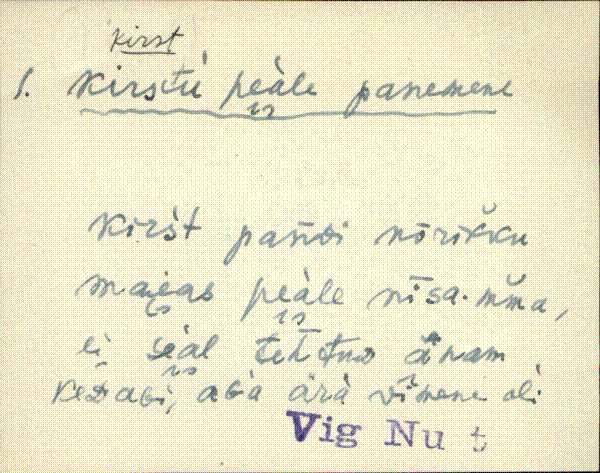 kirst
1. kirstu peàle panemene
kirst pańdi nōrikku
maias peàle nīsa.mma,
ei seàl tehtud änam
kedagi, aga ärà vīmene oli
Vig Nu t